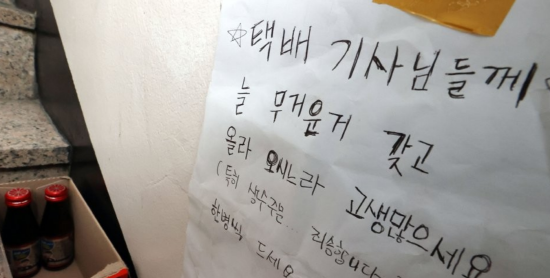 ☆택배 기사님들께
늘 무거운거 갖고
올라 오시느라 고생많으세요
(특히 생수주문... 죄송합니다
한병씩 드세요